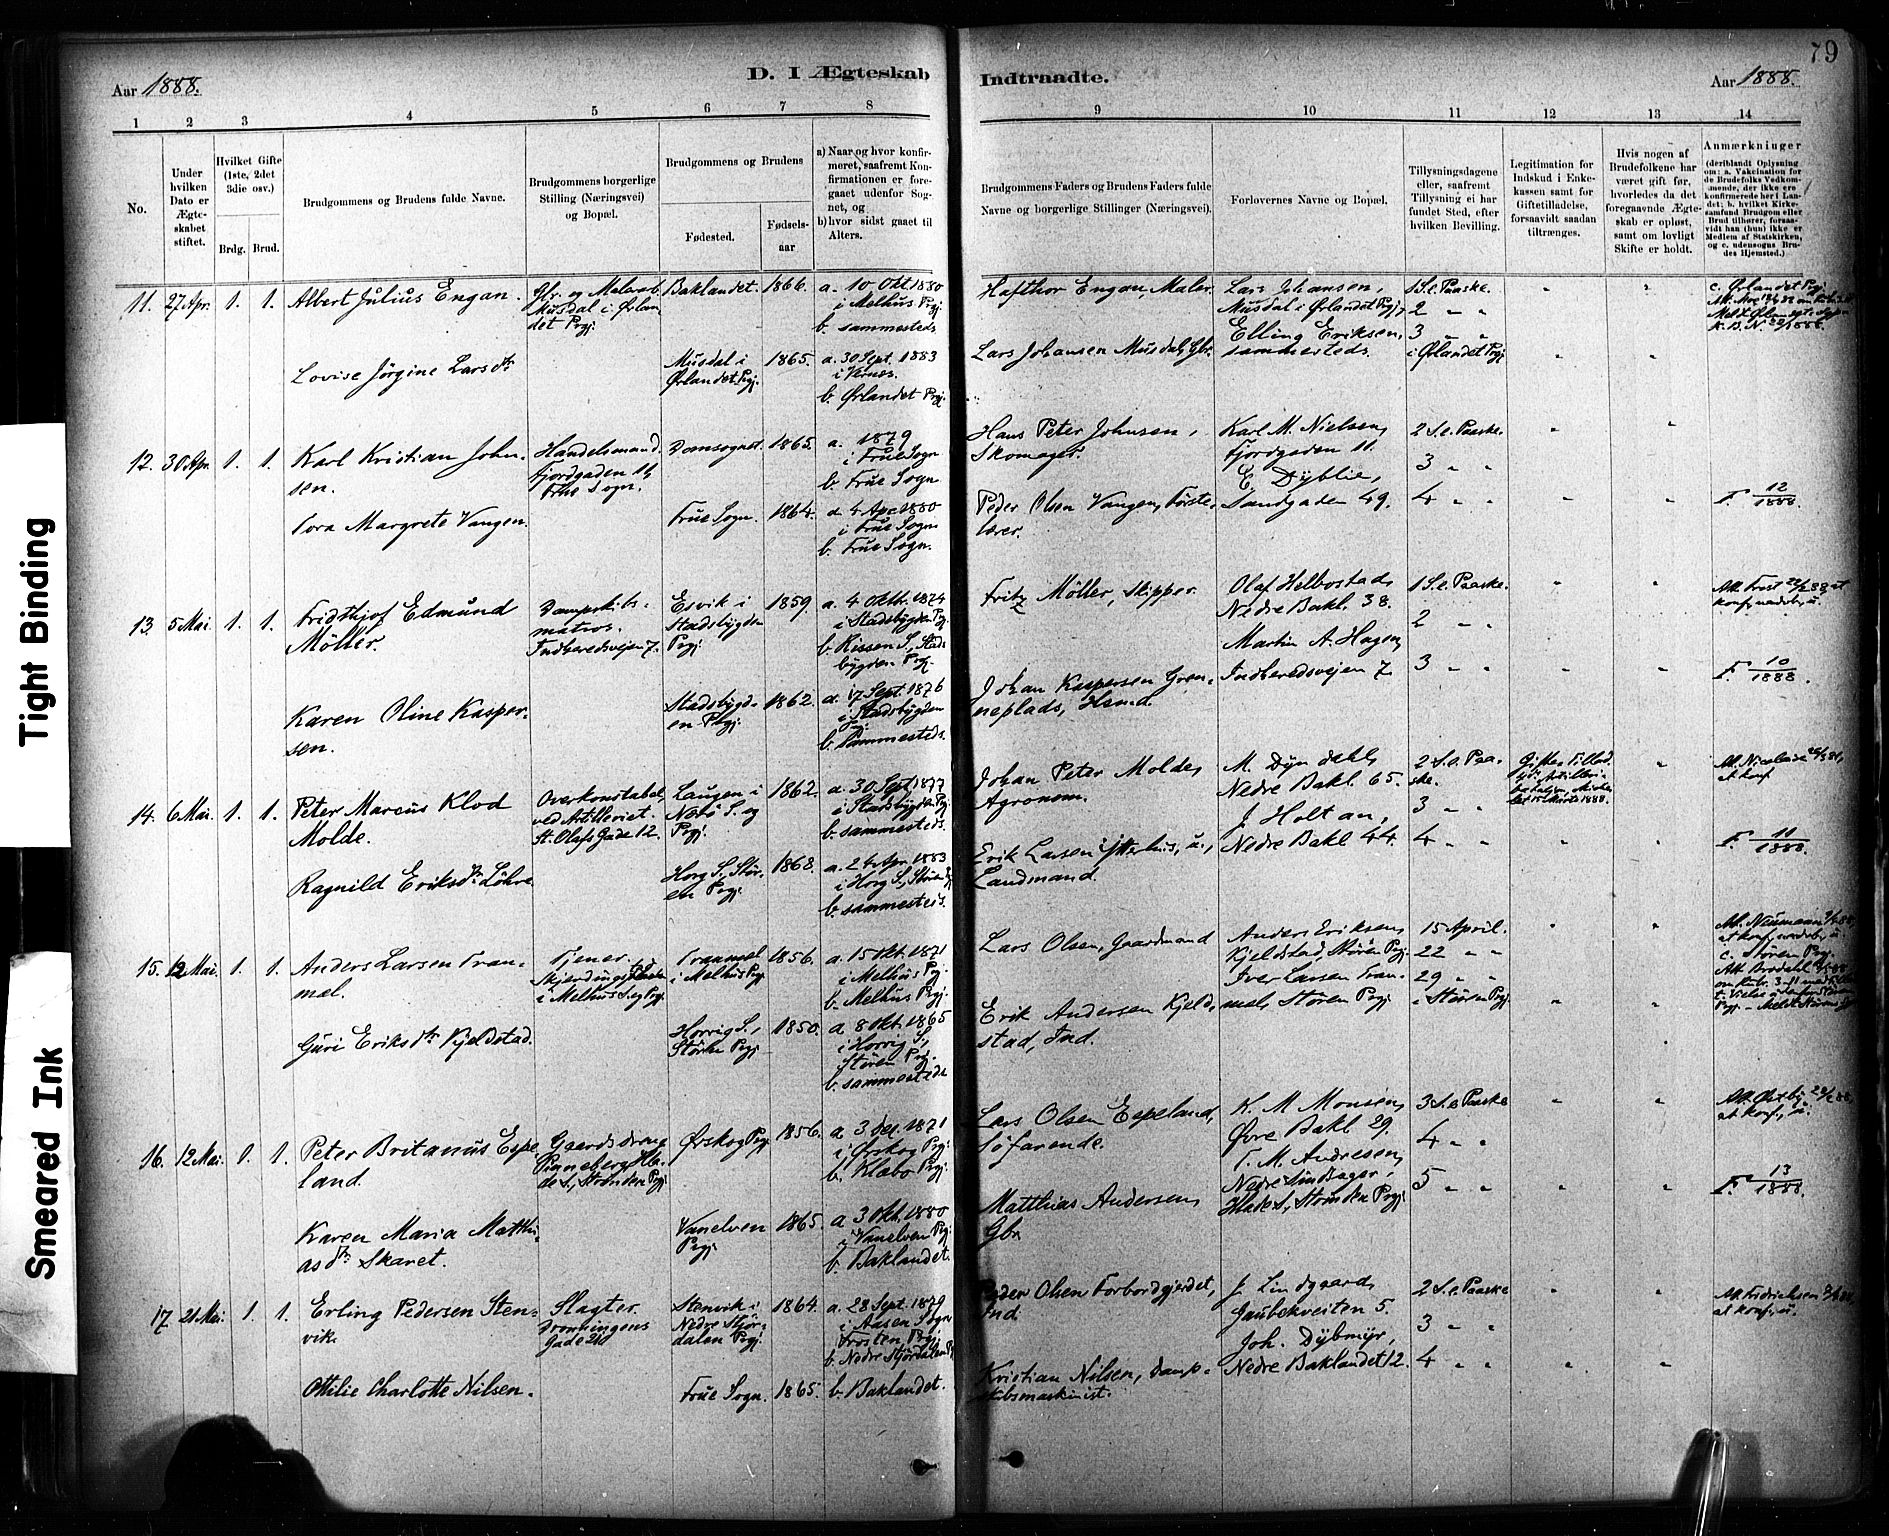 79
Aar 1888.
D. I Ægteskab
Indtraadte.
Aar 1888.
1 2 3 4 5 6 7 8
9 10 11 12 13 14
No.
Under
hvilken
Dato er
Ægte-
skabet
stiftet.
Hvilket Gifte
(1ste, 2det
3die osv.)
Brdg. Brud.
Brudgommens og Brudens fulde Navne.
Brudgommens borgerlige
Stilling (Næringsvei)
og Bopæl.
Brudgommens og Brudens
Fødested.
Fødsels-
aar
a) Naar og hvor konfir-
meret, saafremt Kon-
firmationen er fore-
gaaet udenfor Sog-
net, og
b) hvor sidst gaaet til
Alters.
Brudgommens Faders og Brudens Faders fulde
Navne og borgerlige Stillinger (Næringsvei).
Forlovernes Navne og Bopæl.
Tillysningsdagene
eller, saafremt
Tillysning ei har
fundet Sted, efter
hvilken Bevilling.
Legitimation for
Indskud i Enke-
kassen samt for
Giftetilladelse,
forsaavidt saadan
tiltrænges.
Hvis nogen af
Brudefolkene har
været gift før,
hvorledes da det
foregaaende Ægte-
skab er opløst,
samt om lovligt
Skifte er holdt.
Anmærkninger
(deriblandt Oplysning
om: a. Vakcination for
de Brudefolks Vedkom-
mende, der ikke ere
konfirmerede her i Lan-
det; b. hvilket Kirke-
samfund Brudgom eller
Brud tilhører, forsaa-
vidt han (hun) ikke er
Medlem af Statskirken,
og c. udensogns Bru-
des Hjemsted.)
11. 27 Apr. 1. 1. Albert Julius Engan.
Musdal i Ørlan-
det Pgj.
Baklandet. 1866.
a. 10 Okt 1880
i Melhus Pgj.
b. sammesteds
Hafthor Engan, Maler.
Lars Johansen,
Musdal i Ørlandet Pgj,
Elling Eriksen,
sammesteds.
1 S. e. Paaske.
2 " "
3 " "
i Ørlandet Pgj.
c. Ørlandet Pgj.
Lovise Jørgine Larsdtr
Musdal i
Ørlandet Pgj.
1865.
a. 30 Sept. 1883
b. Ørlandet Pgj.
Lars Johansen Musdal, Gbr.
12. 30 Apr. 1. 1. Karl Kristian John-
sen.
Handelsmand.
Fjordgaden 11,
Domsognet. 1865.
a. 1879
i Frue Sogn
b. Frue Sogn
Hans Peter Johnsen,
Skomager.
Karl M. Nielsen,
Fjordgaden 11.
E. Dyblie,
Sandgaden 49.
2 S. e. Paaske.
3 " "
4 " "
F. 12/1888.
Tora Margrete Vangen.
Frue Sogn. 1864.
a. 4 Apr. 1880
i Frue Sogn
b. Frue Sogn.
Peder Olsen Vangen, Første-
lærer.
13. 5 Mai. 1. 1. Fridthjof Edmund
Möller.
Dampskibs-
matros.
Indheredsvejen 7.
Esvik i
Stadsbygden
Pgj.
1859
a. 4 Oktbr. 1874
i Stadsbygden Pgj
b. Rissen S., Stads-
bygden Pgj.
Fritz Möller, Skipper.
Olaf Helbostad,
Nedre Bakl. 38.
Martin A. Hagen,
Indheredsvejen 7.
1 S. e. Paaske.
2 " "
3 " "
F. 10/1888.
Karen Oline Kasper-
sen.
Stadsbygd-
en Pgj.
1862.
a. 17 Sept. 1876
i Stadsbygden
Pgj.
b. sammesteds.
Johan Kaspersen Grøn-
neplads, Hsmd.
14. 6 Mai. 1. 1. Peter Marcus Klod
Molde.
Overkonstabel
ved Artilleriet.
St. Olafs Gade 12.
1862.
a. 30 Sept. 1877
i Stadsbygden Pgj
b. sammesteds.
Johan Peter Molde,
Agronom.
M. Dyndahl,
Nedre Bakl. 65.
J. Holtan,
Nedre Bakl 44.
2 S. e. Paa-
ske.
3 " "
4 " "
F. 11/1888.
Ragnild Eriksdtr Løhre.
Horg S., Stør-
en Pgj.
1868.
a. 24 Apr. 1883
i Horg S., Støren Pgj
b. sammesteds.
Landmand.
15. 12 Mai. 1. 1. Anders Larsen Tran-
mæl.
Tjener.
i Melhus S. og Pgj.
Tranmæl
i Melhus Pgj
1856.
a. 15 Okt. 1871
i Melhus Pgj.
b. Melhus Pgj.
Lars Olsen, Gaardmand
Anders Eriksen,
Kjeldstad, Støren Pgj.
Iver Larsen Tran-
mæl, Støren Pgj.
15 April.
22 " "
29 " "
i Støren Pgj.
c. Støren Pgj.
Guri Eriksdtr Kjeldstad.
Horrig S.,
Støren Pgj.
1850.
a. 8 Okt. 1865
i Horrig S.,
Støren Pgj.
b. sammesteds
Erik Andersen Kjeld-
stad, Ind.
16. 12 Mai. 1. 1. Peter Britanus Espe-
land.
Gaardsdreng
Ørskog Pgj. 1856.
a. 3 Des. 1871
i Ørskog Pgj.
b. Klæbo Pgj.
Lars Olsen Espeland,
Søfarende.
K. M. Monsen,
Øvre Bakl 29.
T. M. Andresen,
Lade S., Strinden Pgj.
3 S. e. Paaske
4 " "
5 " "
F. 13/1888.
Karen Maria Matthi-
asdtr Skaret.
Vanelven
Pgj.
1865.
a. 3 Okt. 1880
i Vanelven Pgj.
b. Baklandet.
Matthias Andersen,
Gbr.
17. 21 Mai. 1. 1. Erling Pedersen Sten-
vik.
Slagter.
Dronningens
Gade 21d
Stenvik i
Nedre Stjør-
dalen Pgj.
1864.
a. 28 Sept. 1879
i Aasen Sogn
Frosten Pgj.
b. Nedre Stjørdalen Pgj
Peder Olsen Forbordgjerdet,
Ind.
J. Lindgaard,
Gaubekveiten 5.
Joh. Dybmyr,
Nedre Baklandet 12.
2 S. e. Paaske
3 " "
4 " "
Ottilie Charlotte Nilsen.
Frue Sogn. 1865.
b. Baklandet.
Kristian Nilsen, Damp-
skibsmaskinist.
Tight Binding
Smeared Ink